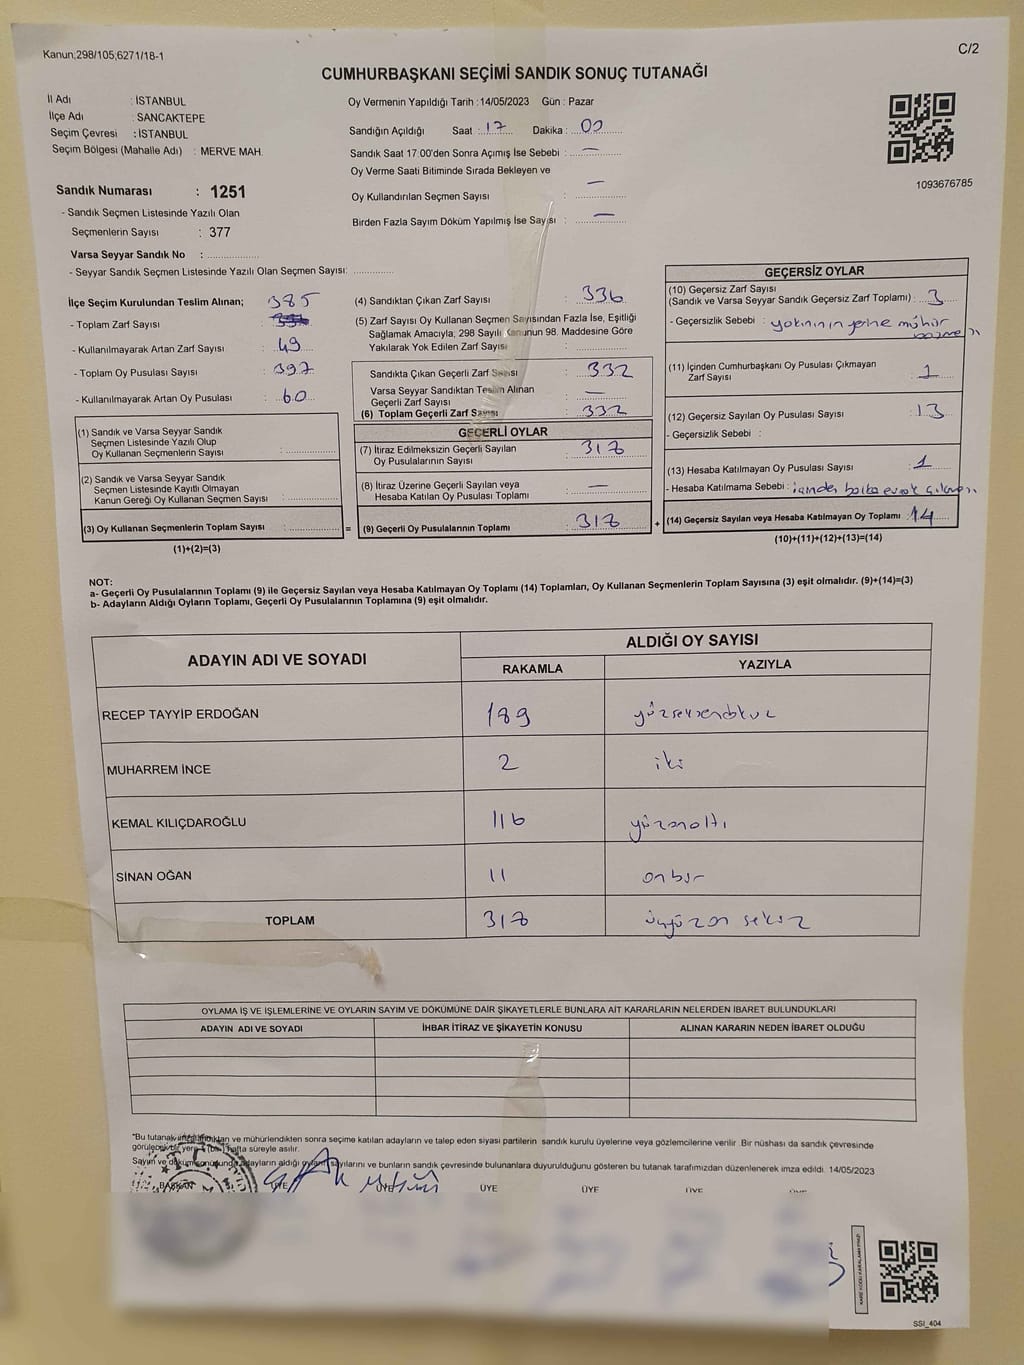 Kanun;298/105;6271/18-1
C/2
CUMHURBAŞKANI SEÇİMİ SANDIK SONUÇ TUTANAĞI
İl Adı : İSTANBUL
İlçe Adı : SANCAKTEPE
Seçim Çevresi : İSTANBUL
Seçim Bölgesi (Mahalle Adı) : MERVE MAH.
Sandık Numarası : 1251
- Sandık Seçmen Listesinde Yazılı Olan
Seçmenlerin Sayısı : 377
Varsa Seyyar Sandık No :
- Seyyar Sandık Seçmen Listesinde Yazılı Olan Seçmen Sayısı:
Oy Vermenin Yapıldığı Tarih : 14/05/2023 Gün : Pazar
Sandığın Açıldığı Saat : 17 Dakika : 00
Sandık Saat 17:00'den Sonra Açılmış İse Sebebi : —
Oy Verme Saati Bitiminde Sırada Bekleyen ve
Oy Kullandırılan Seçmen Sayısı : —
Birden Fazla Sayım Döküm Yapılmış İse Sayısı : —
1093676785
İlçe Seçim Kurulundan Teslim Alınan; 385
- Toplam Zarf Sayısı :
- Kullanılmayarak Artan Zarf Sayısı : 49
- Toplam Oy Pusulası Sayısı : 397
- Kullanılmayarak Artan Oy Pusulası : 60
(1) Sandık ve Varsa Seyyar Sandık
Seçmen Listesinde Yazılı Olup
Oy Kullanan Seçmenlerin Sayısı :
(2) Sandık ve Varsa Seyyar Sandık
Seçmen Listesinde Kayıtlı Olmayan
Kanun Gereği Oy Kullanan Seçmen Sayısı :
(3) Oy Kullanan Seçmenlerin Toplam Sayısı : =
(1)+(2)=(3)
(4) Sandıktan Çıkan Zarf Sayısı : 336
(5) Zarf Sayısı Oy Kullanan Seçmen Sayısından Fazla İse, Eşitliği
Sağlamak Amacıyla; 298 Sayılı Kanunun 98. Maddesine Göre
Yakılarak Yok Edilen Zarf Sayısı :
Sandıkta Çıkan Geçerli Zarf Sayısı : 332
Varsa Seyyar Sandıktan Teslim Alınan
Geçerli Zarf Sayısı : —
(6) Toplam Geçerli Zarf Sayısı : 332
GEÇERLİ OYLAR
(7) İtiraz Edilmeksizin Geçerli Sayılan
Oy Pusulalarının Sayısı : 318
(8) İtiraz Üzerine Geçerli Sayılan veya
Hesaba Katılan Oy Pusulası Toplamı : —
(9) Geçerli Oy Pusulalarının Toplamı : 318 +
GEÇERSİZ OYLAR
(10) Geçersiz Zarf Sayısı
(Sandık ve Varsa Seyyar Sandık Geçersiz Zarf Toplamı) : 3
- Geçersizlik Sebebi : yerine mühür
(11) İçinden Cumhurbaşkanı Oy Pusulası Çıkmayan
Zarf Sayısı : 1
(12) Geçersiz Sayılan Oy Pusulası Sayısı : 13
- Geçersizlik Sebebi :
(13) Hesaba Katılmayan Oy Pusulası Sayısı : 1
- Hesaba Katılmama Sebebi : içinden başka evrak çıkması
(14) Geçersiz Sayılan veya Hesaba Katılmayan Oy Toplamı : 14
(10)+(11)+(12)+(13)=(14)
NOT:
a- Geçerli Oy Pusulalarının Toplamı (9) ile Geçersiz Sayılan veya Hesaba Katılmayan Oy Toplamı (14) Toplamları, Oy Kullanan Seçmenlerin Toplam Sayısına (3) eşit olmalıdır. (9)+(14)=(3)
b- Adayların Aldığı Oyların Toplamı, Geçerli Oy Pusulalarının Toplamına (9) eşit olmalıdır.
ADAYIN ADI VE SOYADI ALDIĞI OY SAYISI
RAKAMLA YAZIYLA
RECEP TAYYİP ERDOĞAN 189 yüzseksendokuz
MUHARREM İNCE 2 iki
KEMAL KILIÇDAROĞLU 116 yüzonaltı
SİNAN OĞAN 11 onbir
TOPLAM 318 üçyüzon sekiz
OYLAMA İŞ VE İŞLEMLERİNE VE OYLARIN SAYIM VE DÖKÜMÜNE DAİR ŞİKAYETLERLE BUNLARA AİT KARARLARIN NELERDEN İBARET BULUNDUKLARI
ADAYIN ADI VE SOYADI İHBAR İTİRAZ VE ŞİKAYETİN KONUSU ALINAN KARARIN NEDEN İBARET OLDUĞU
"Bu tutanak ve mühürlendikten sonra seçime katılan adayların ve talep eden siyasi partilerin sandık kurulu üyelerine veya gözlemcilerine verilir .Bir nüshası da sandık çevresinde
görülecek bir yere hafta süreyle asılır.
Sayım ve döküm sonucunda adayların aldığı oyların sayılarını ve bunların sandık çevresinde bulunanlara duyurulduğunu gösteren bu tutanak tarafımızdan düzenlenerek imza edildi. 14/05/2023
BAŞKAN ÜYE ÜYE ÜYE ÜYE ÜYE
SSI_404